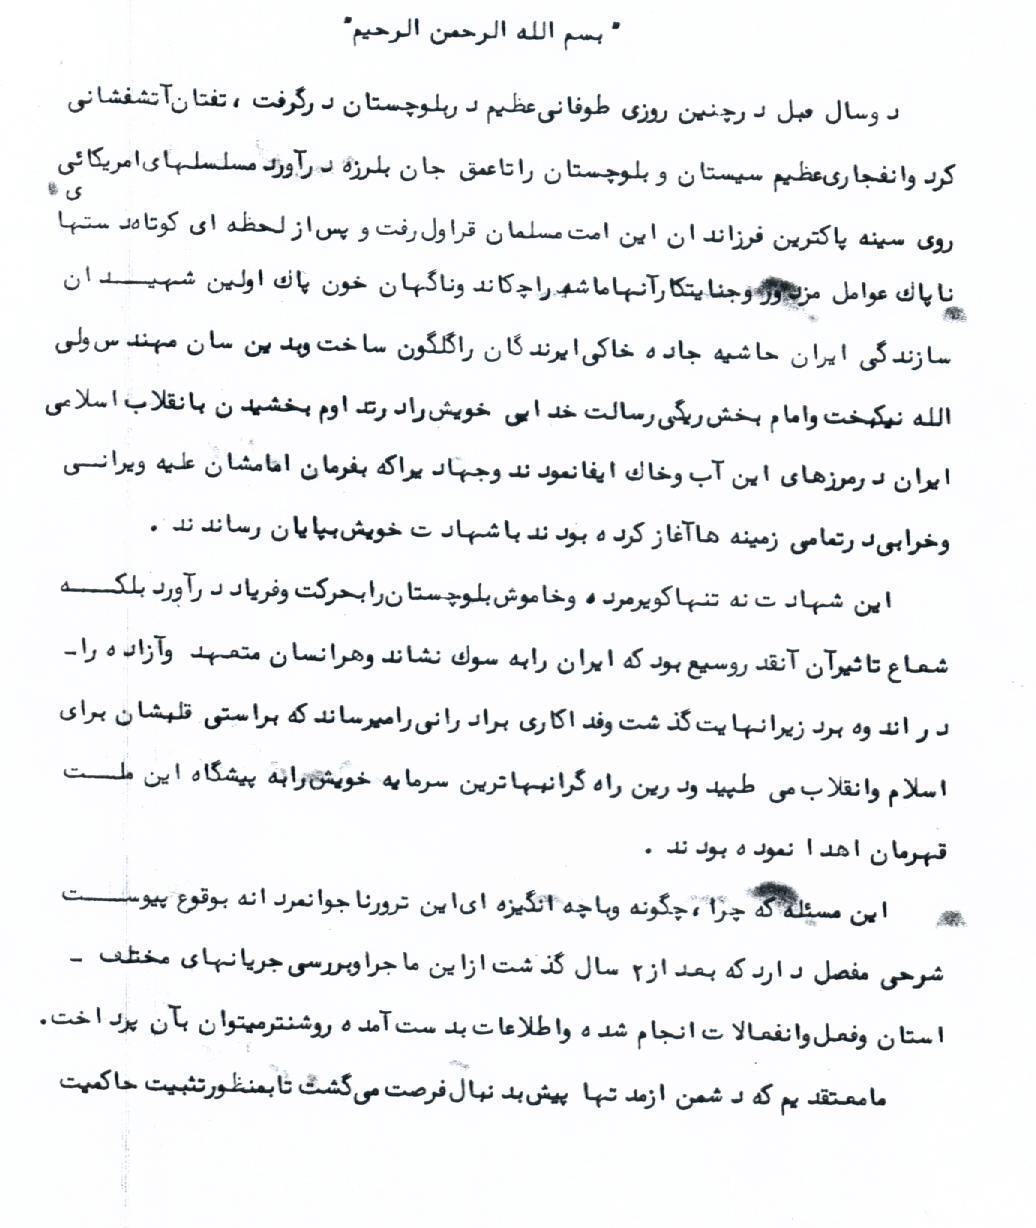 "بسم الله الرحمن الرحیم"
دوسال قبل درچنین روزی طوفانی عظیم دربلوچستان درگرفت ، تفتان آتشفشانی
کرد وانفجاری عظیم سیستان و بلوچستان راتاعمق جان بلرزه درآورد مسلسلهای امریکائی
ی
روی سینه پاکترین فرزندان این امت مسلمان قراول رفت و پس از لحظه ای کوتاه دستها
ناپاك عوامل مزدور وجنایتکارآنهاماشه راچکاند وناگهان خون پاك اولین شهیـــدان
سازندگی ایران حاشیه جاده خاکی ایرندگان راگلگون ساخت وبدین سان مهندس ولی
الله نیکبخت وامام بخش ریگی رسالت خدایی خویش رادرتداوم بخشیدن بانقلاب اسلامی
ایران درمرزهای این آب وخاك ایفانمودند وجهادیراکه بفرمان امامشان علیه ویرانــی
وخرابی درتمامی زمینه هاآغاز کرده بودند باشهادت خویش بپایان رساندند .
این شهادت نه تنهاکویرمرده وخاموش بلوچستان رابحرکت وفریاد درآورد بلکــــه
شعاع تاثیرآن آنقدر وسیع بود که ایران رابه سوك نشاند وهرانسان متعهد وآزاده راـ
دراندوه برد زیرانهایت گذشت وفداکاری برادرانی رامیرساند که براستی قلبشان برای
اسلام وانقلاب می طپید ودرین راه گرانبهاترین سرمایه خویش رابه پیشگاه این ملــت
قهرمان اهدا نموده بودند .
این مسئله که چرا ، چگونه وباچه انگیزه ای این ترورناجوانمردانه بوقوع پیوســـت
شرحی مفصل دارد که بعد از ۲ سال گذشت ازاین ماجراوبررسی جریانهای مختلف ـ
استان وفعل وانفعالات انجام شده واطلاعات بدست آمده روشنترمیتوان بآن پرداخت.
مامعتقدیم که دشمن ازمدتها پیش بدنبال فرصت می گشت تابمنظورتثبیت حاکمیت